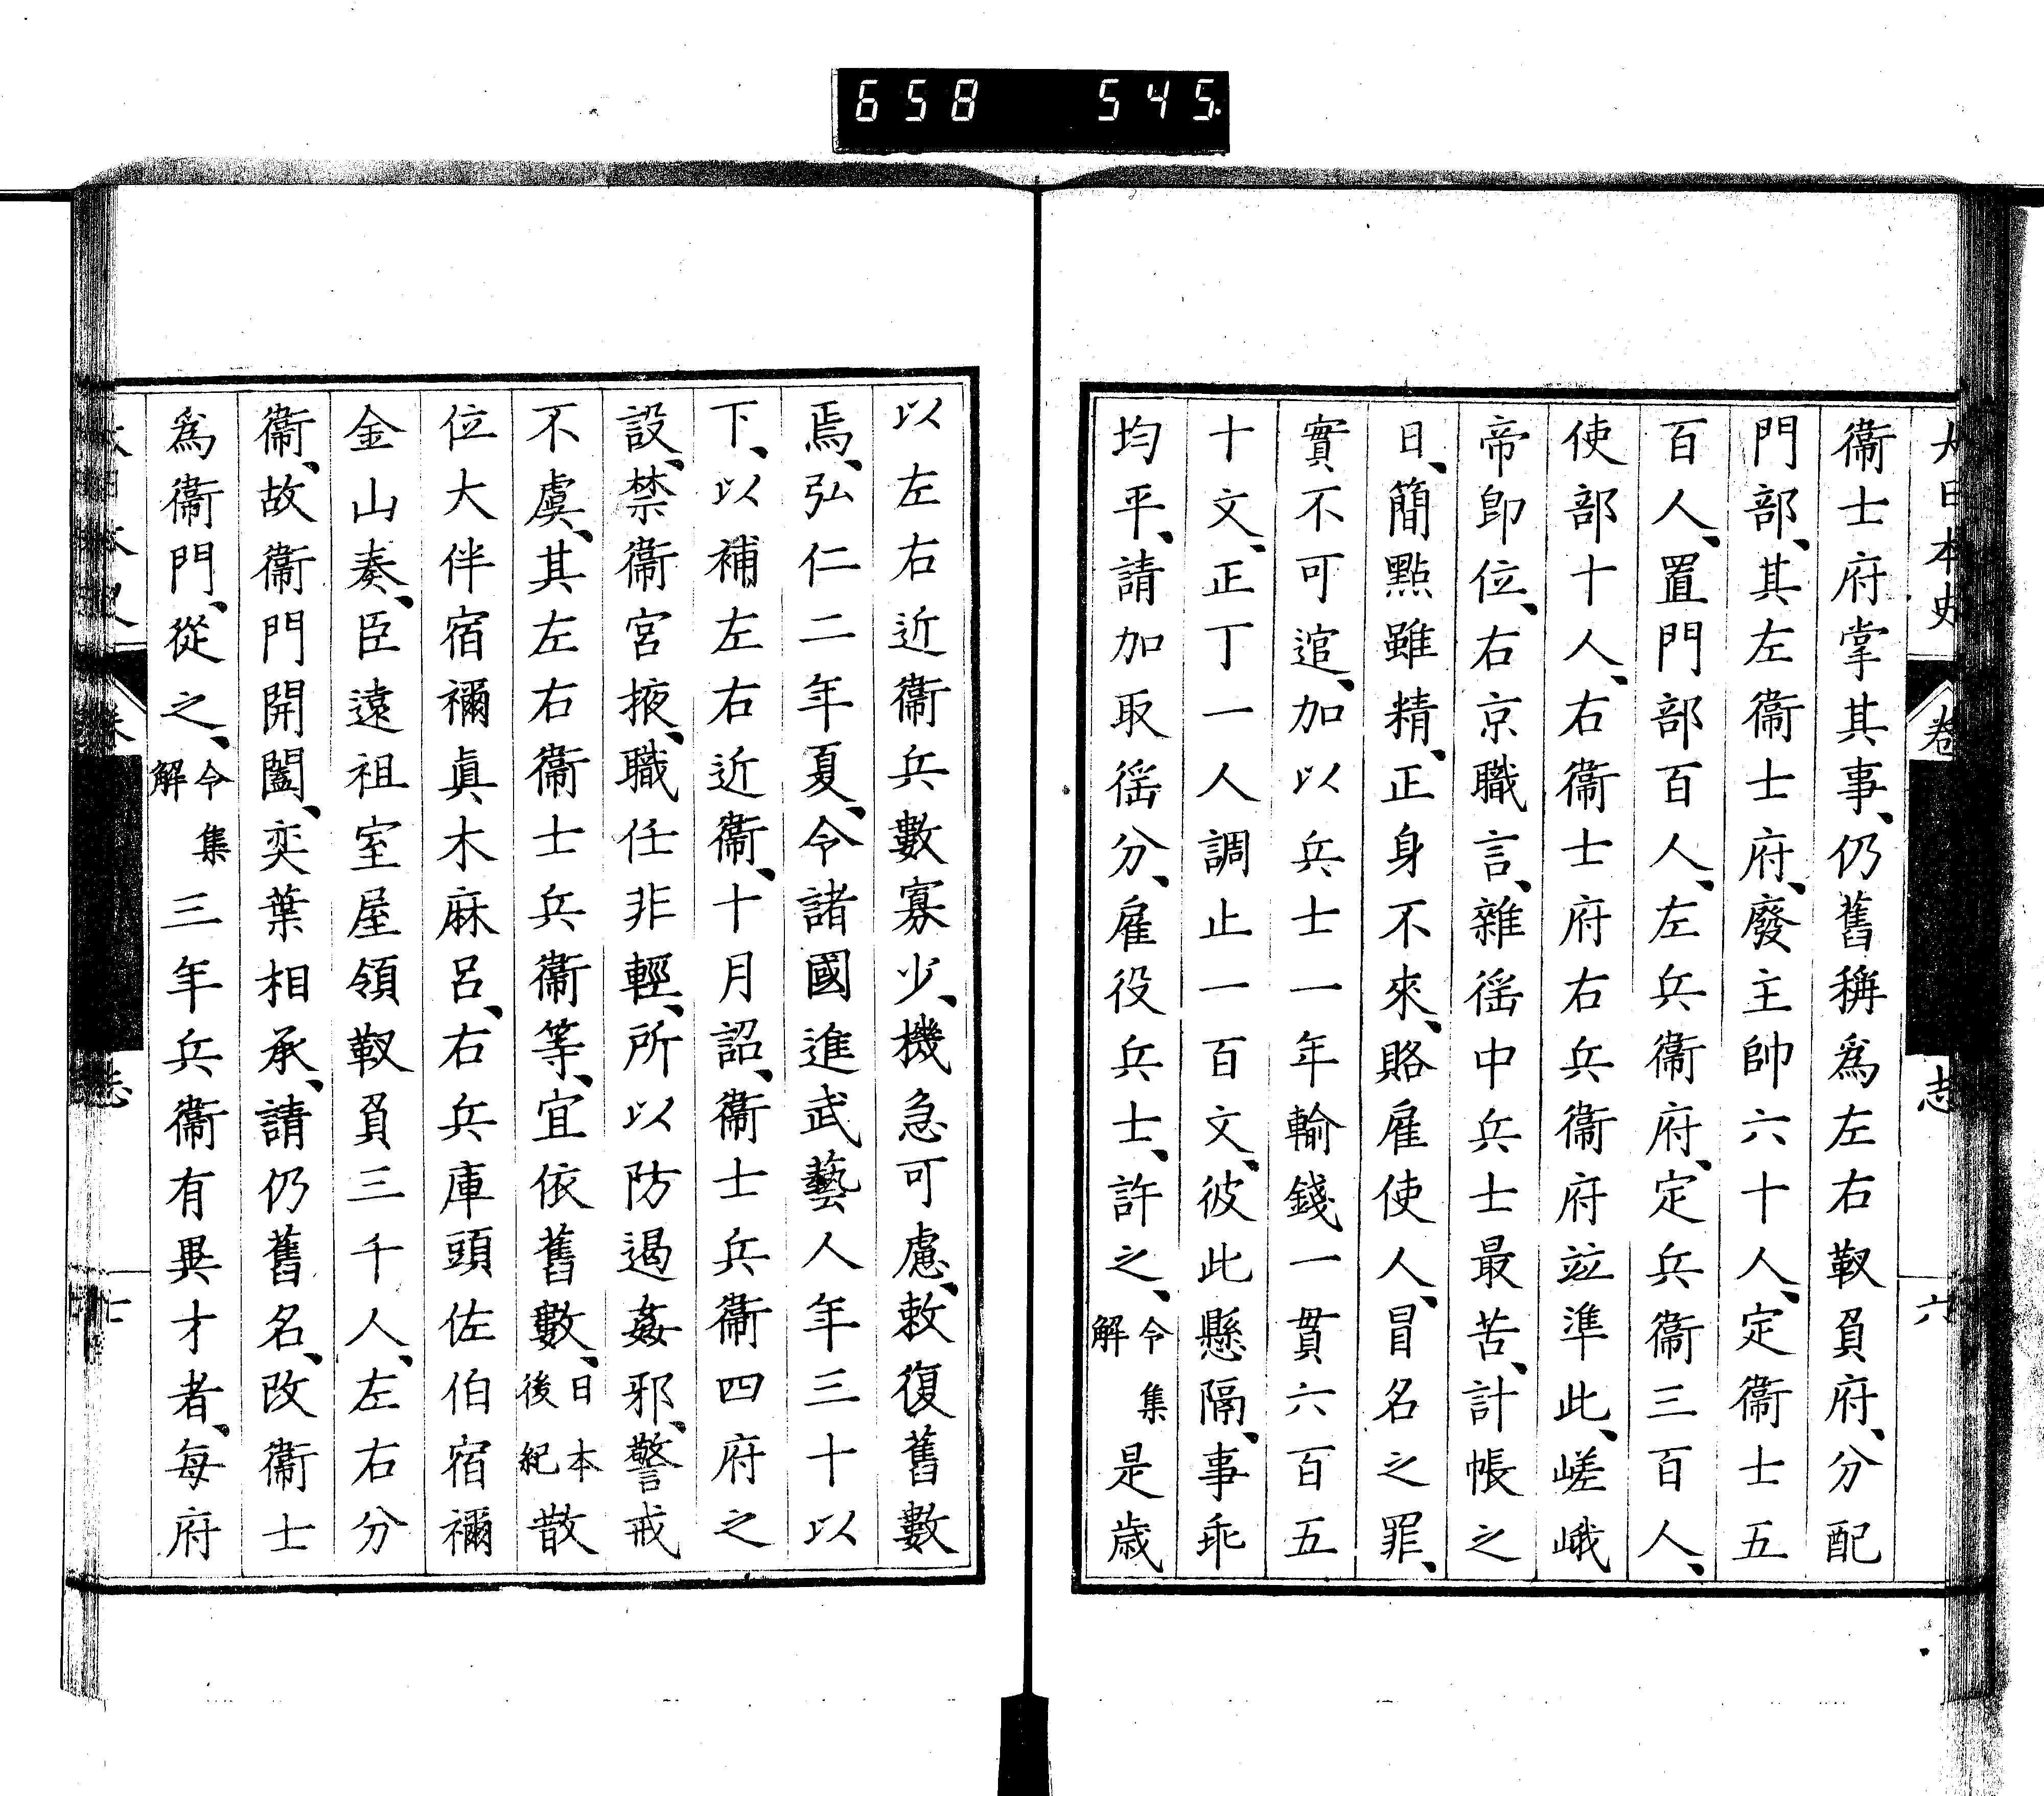 658 545.
大日本史 卷 志 六
衞士府掌其事、仍舊稱爲左右靫負府、分配
門部、其左衞士府、廢主帥六十人、定衞士五
百人、置門部百人、左兵衞府、定兵衞三百人、
使部十人、右衞士府右兵衞府竝準此、嵯峨
帝卽位、右京職言、雜徭中兵士最苦、計帳之
日、簡點雖精、正身不來、賂雇使人、冒名之罪、
實不可逭、加以兵士一年輸錢一貫六百五
十文、正丁一人調止一百文、彼此懸隔、事乖
均平、請加取徭分、雇役兵士、許之、令集解是歲
以左右近衞兵數寡少、機急可慮、敕復舊數
焉、弘仁二年夏、令諸國進武藝人年三十以
下、以補左右近衞、十月詔、衞士兵衞四府之
設、禁衞宮掖、職任非輕、所以防遏姦邪、警戒
不虞、其左右衞士兵衞等、宜依舊數、日本後紀散
位大伴宿禰眞木麻呂、右兵庫頭佐伯宿禰
金山奏、臣遠祖室屋領靫負三千人、左右分
衞、故衞門開闔、奕葉相承、請仍舊名、改衞士
爲衞門、從之、令集解三年兵衞有異才者、每府
志 七